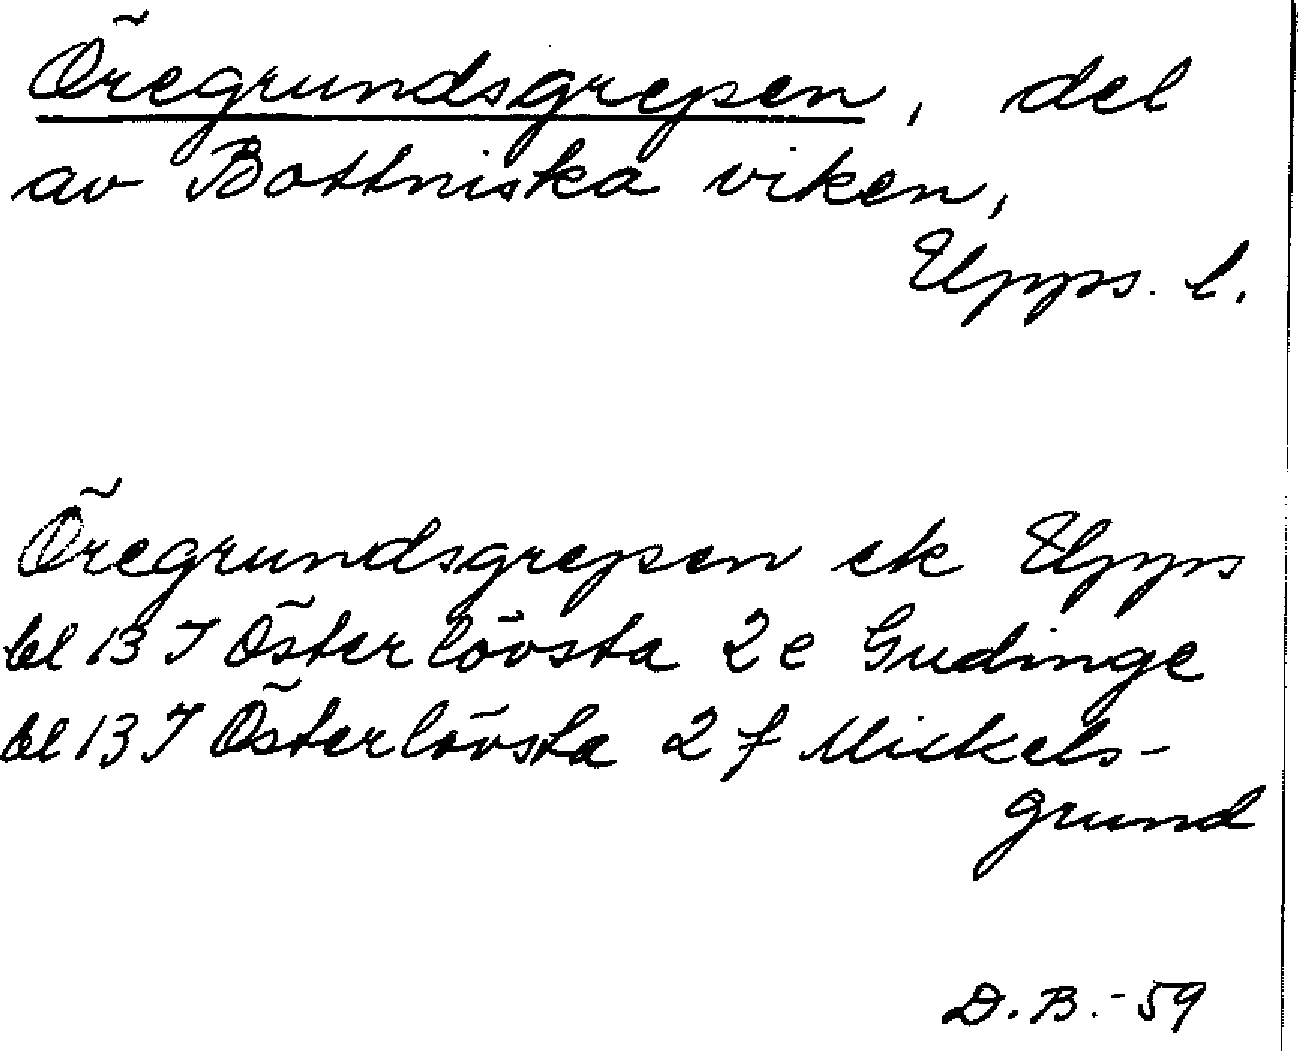 Öregrundsgrepen, del
av Bottniska viken,
Upps. l.
Öregrundsgrepen ek Upps
bl 13 I Österlövsta 2 e Gudinge
bl 13 I Österlövsta 2 f Mickels-
grund
D.B.-59